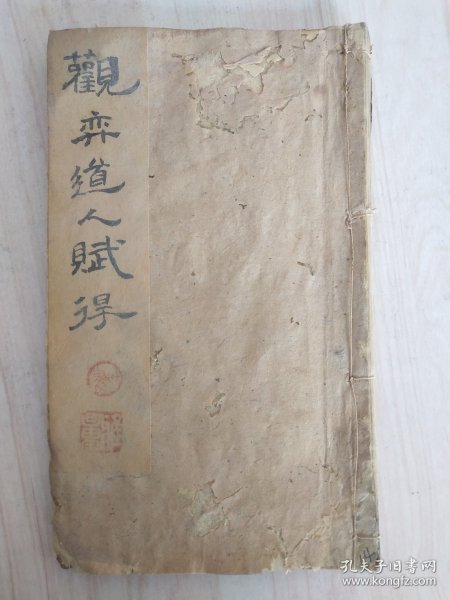 觀弈道人賦得
孔夫子旧书网
www.kongfz.com